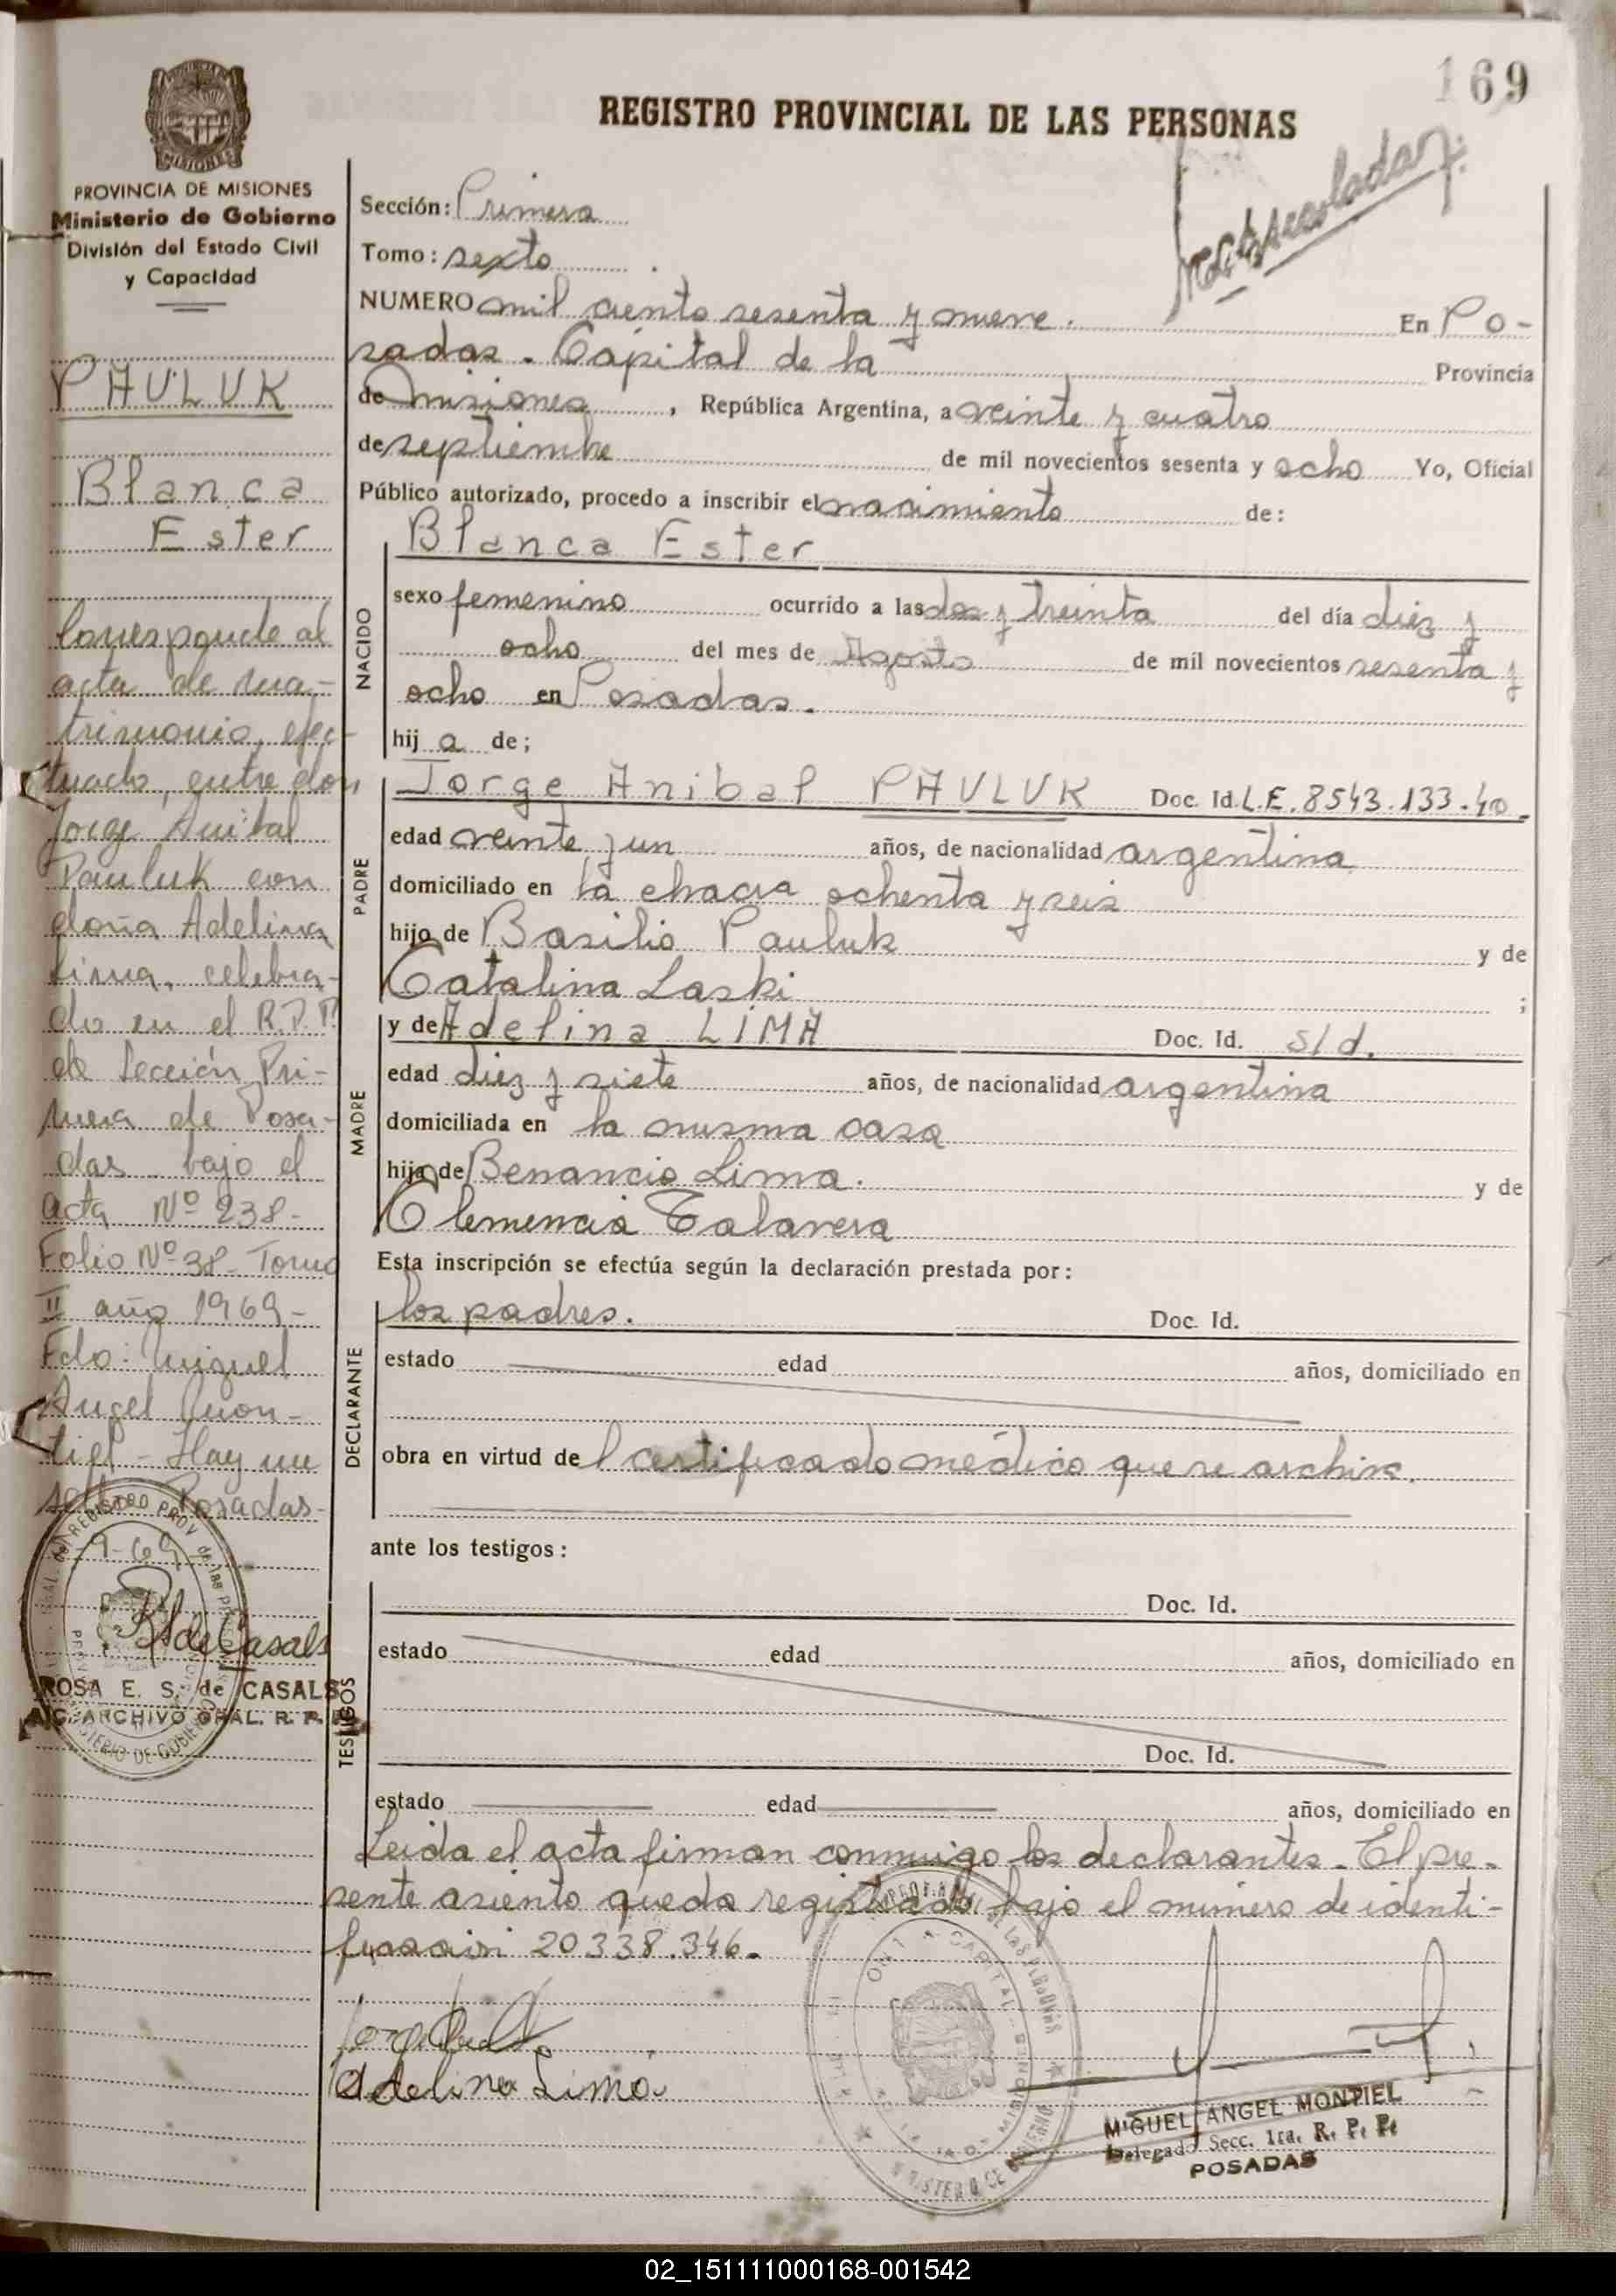 169
REGISTRO PROVINCIAL DE LAS PERSONAS
PROVINCIA DE MISIONES
Ministerio de Gobierno
División del Estado Civil
y Capacidad
PAULUK
Blanca
Ester
Corresponde al
acta de ma-
trimonio, efec-
tuado, entre don
Jorge Anibal
Pauluk con
doña Adelina
Lima, celebra-
do en el R.P.P.
de Sección Pri-
mera de Posa-
das bajo el
acta Nº 238-
Folio Nº 38- Tomo
II año 1969-
Fdo: Miguel
Angel Mon-
tiel - Hay un
sello Posadas-
9-69
R de Casals
ROSA E. S. de CASALS
ARCHIVO GRAL. R. P. P.
Sección: Primera
Tomo: sexto
NUMERO mil ciento sesenta y nueve. En Po-
sadas. Capital de la Provincia
de Misiones, República Argentina, a veinte y cuatro
de septiembre de mil novecientos sesenta y ocho Yo, Oficial
Público autorizado, procedo a inscribir el nacimiento de:
NACIDO
Blanca Ester
sexo femenino ocurrido a las dos y treinta del día diez y
ocho del mes de Agosto de mil novecientos sesenta y
ocho en Posadas.
hij a de;
PADRE
Jorge Anibal PAULUK Doc. Id. L.E. 8543.133.40
edad veinte y un años, de nacionalidad argentina
domiciliado en la chacra ochenta y seis
hijo de Basilio Pauluk y de
Catalina Laski ;
MADRE
y de Adelina LIMA Doc. Id. s/d.
edad diez y siete años, de nacionalidad argentina
domiciliada en la misma casa
hija de Benancio Lima. y de
Clemencia Talavera
Esta inscripción se efectúa según la declaración prestada por:
DECLARANTE
los padres. Doc. Id.
estado edad años, domiciliado en
obra en virtud de l certificado médico que se archiva.
ante los testigos:
TESTIGOS
Doc. Id.
estado edad años, domiciliado en
Doc. Id.
estado edad años, domiciliado en
Leida el acta firman conmigo los declarantes. El pre-
sente asiento queda registrado bajo el número de identi-
ficación 20338.346.
Adelina Lima
MIGUEL ANGEL MONTIEL
Delegado Secc. 1ra. R. P. P.
POSADAS
02_151111000168-001542